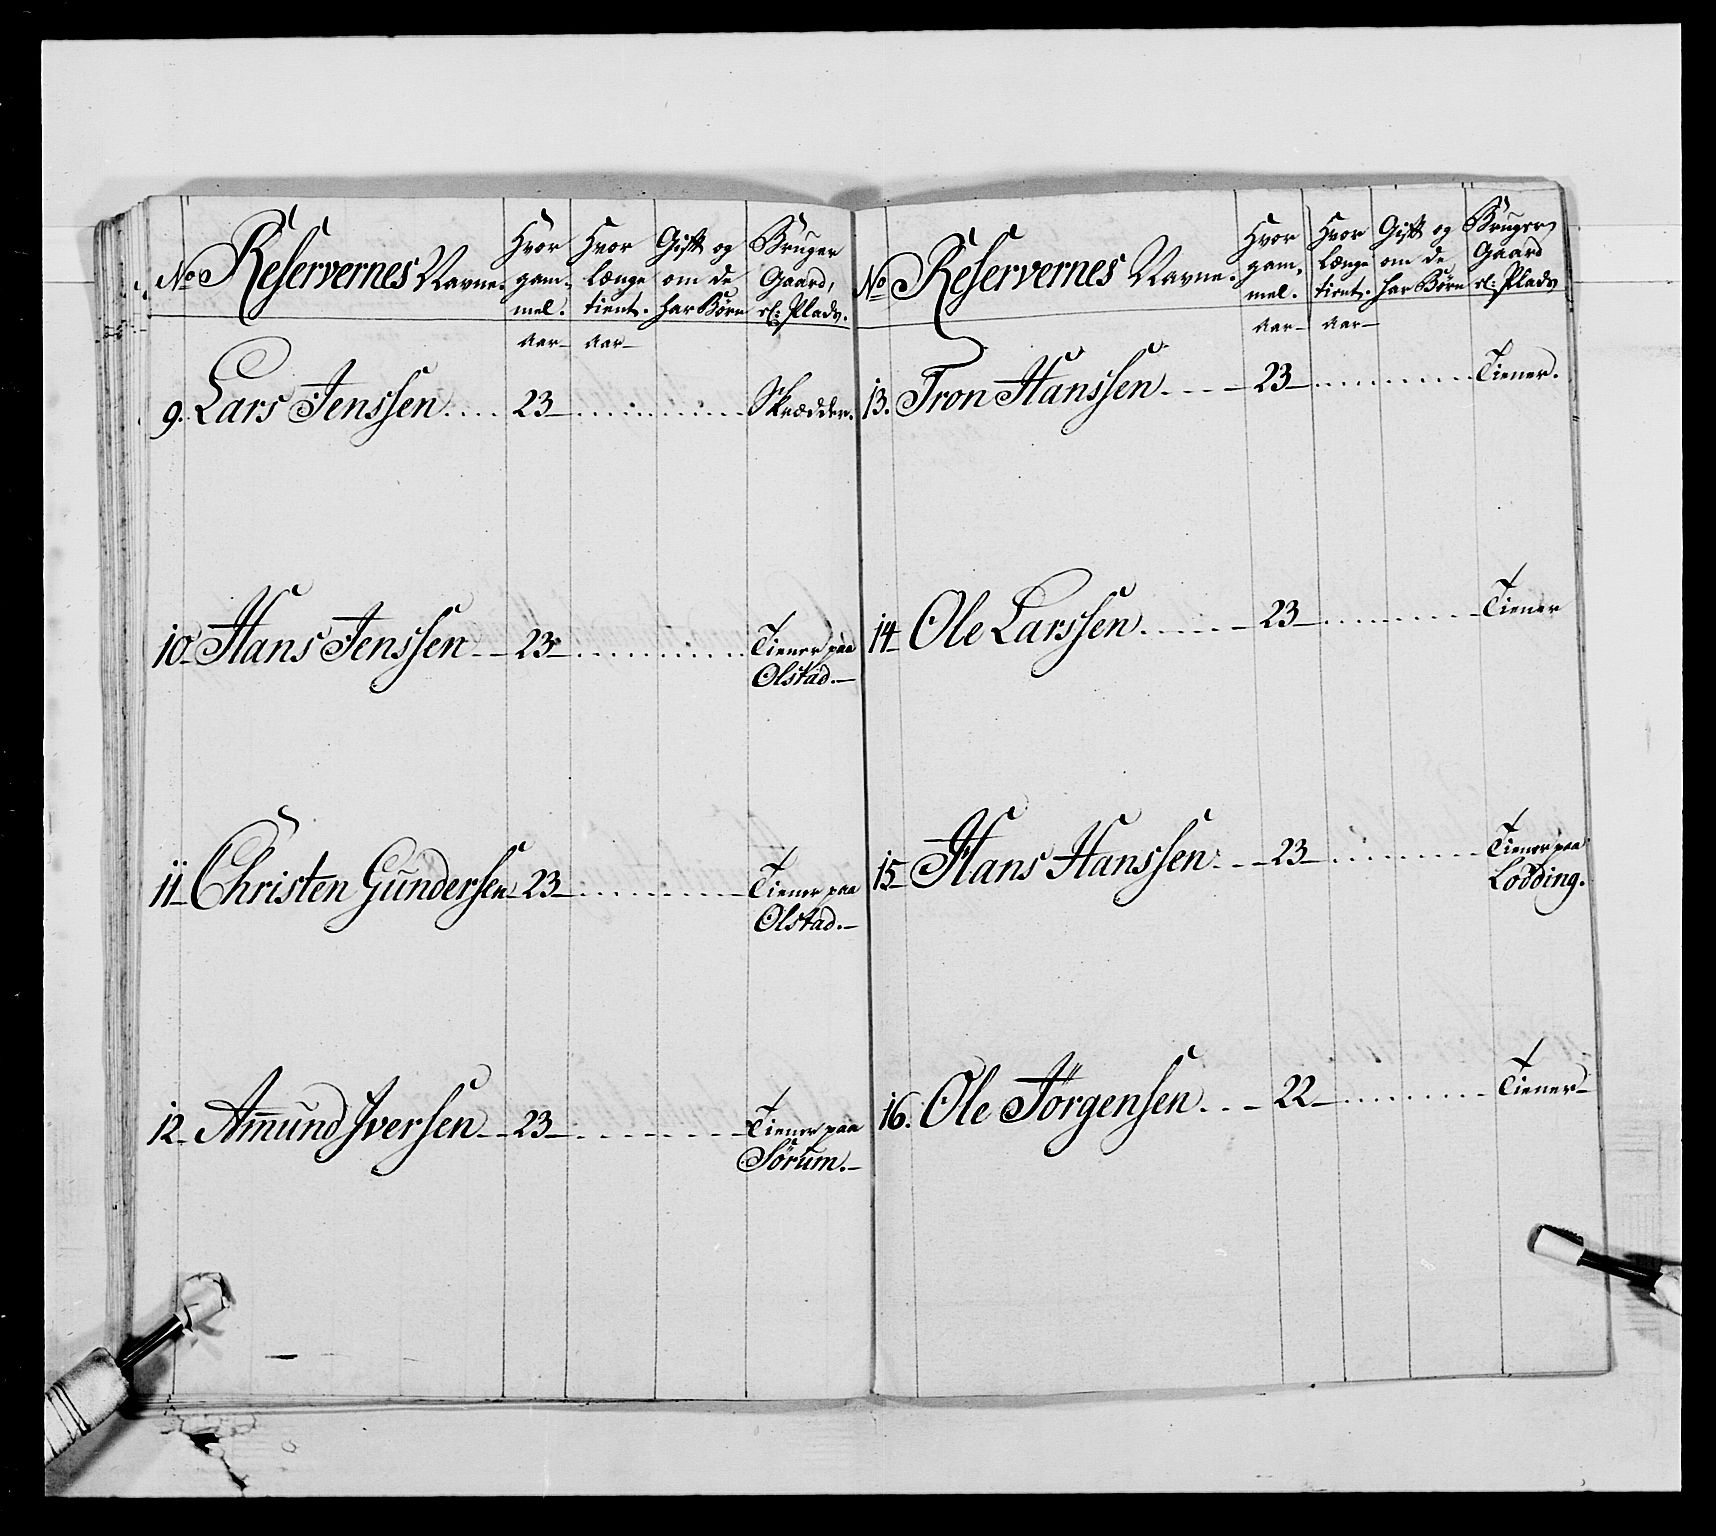 No Reservernes Navne. Hvor gam- mel. Hvor længe tient. Gift og om de har Børn Bruger Gaard, el: Plads.
Aar— Aar—
9. Lars Jenssen.... 23— Skrædder.
10. Hans Jenssen 23— Tiener paa
Olstad.—
11. Christen Gundersen 23— Tiener paa
Olstad.—
12. Amund Iversen 23— Tiener paa
Sørum.—
No Reservernes Navne. Hvor gam- mel. Hvor længe tient. Gift og om de har Børn Bruger Gaard el: Plads
Aar— Aar—
13. Tron Hanssen 23— Tiener.
14. Ole Larssen 23— Tiener
15. Hans Hanssen 23— Tiener paa
Lodding.
16. Ole Jørgensen 22— Tiener—